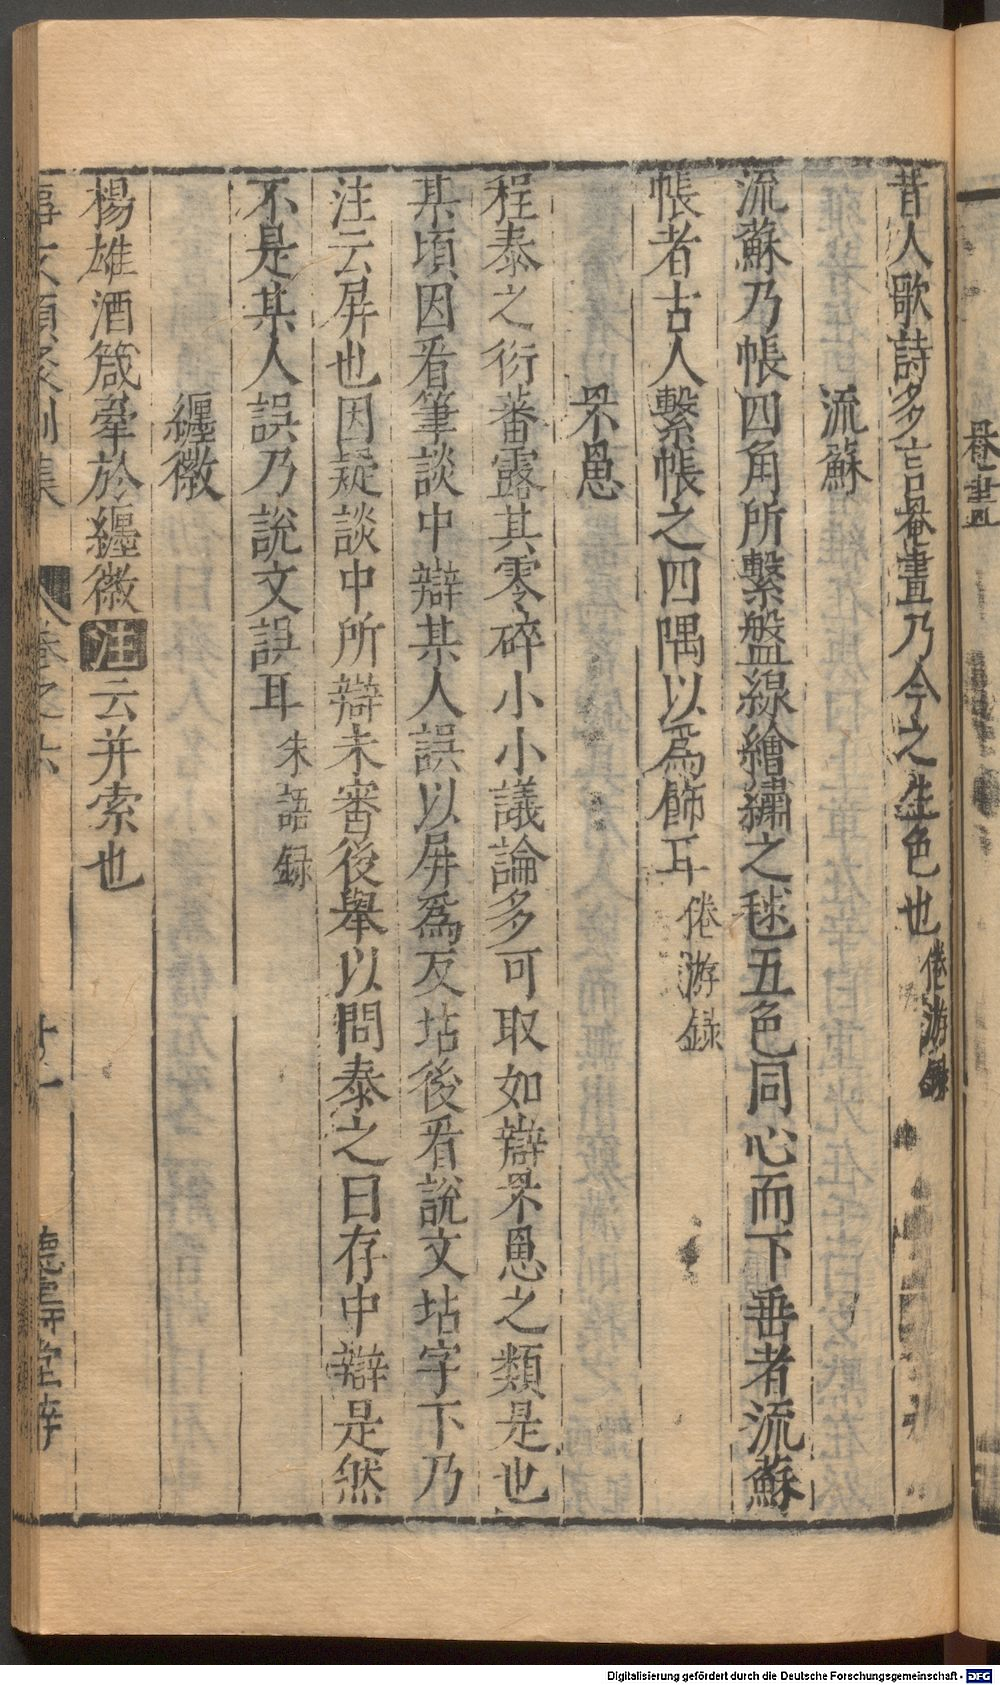 昔人歌詩多言罨畫乃今之生色也 倦游錄
流蘇
流蘇乃帳四角所繫盤線繪繡之毬五色同心而下垂者流蘇
帳者古人繫帳之四隅以爲飾耳 倦游錄
罘罳
程泰之衍蕃露其零碎小小議論多可取如辯罘罳之類是也
某頃因看筆談中辯某人誤以屏爲反坫後看說文坫字下乃
注云屏也因疑談中所辯未審後舉以問泰之曰存中辯是然
不是某人誤乃說文誤耳 朱語録
纏徽
楊雄酒箴牽於纏徽注云井索也
事文類聚別集 卷之六 十一 德壽堂梓
罨畫
Digitalisierung gefördert durch die Deutsche Forschungsgemeinschaft - DFG